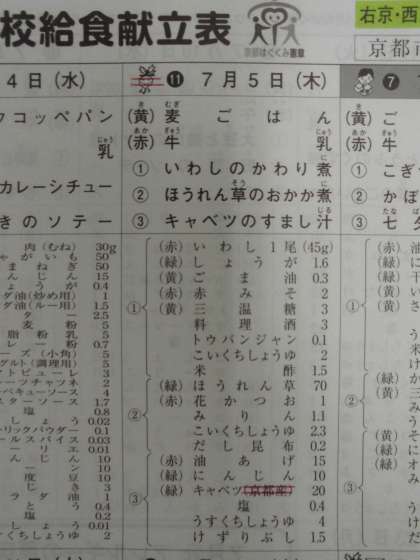 校給食献立表
京都はぐくみ憲章
右京・西
京都市
4日（水）
コッペパン
乳
カレーシチュー
きのソテー
肉（むね） 30g
50
まねぎ 50
んじん 15
ょうが 0.4
ダ油（炒め用） 1
ダ油（ルー用） 1.5
ター 2.5
麦粉 5
脂粉乳 5
レー粉 0.7
ーズ（小角） 5
グルト（調理用） 5
トピューレ 3
ーツチャツネ 2
ーベキューソース 4
スターソース 1.7
塩 0.8
しょう 0.02
ーリックパウダー 0.1
ールスパイス 0.03
ーリエ 0.01
んじん 10
ーン 10
度豆 10
じき 3
ラダ油 1
とう 0.4
塩 0.2
しょう 0.01
くちしょうゆ 2
⓫ 7月5日（木）
（黄）麦ごはん
（赤）牛乳
① いわしのかわり煮
② ほうれん草のおかか煮
③ キャベツのすまし汁
①
（赤）いわし1尾（45g）
（緑）しょうが 1.6
（黄）ごま油 0.3
（赤）赤みそ 2
（黄）三温糖 3
料理酒 3
トウバンジャン 0.1
こいくちしょうゆ 2
米酢 1.5
②
（緑）ほうれん草 70
（赤）花かつお 1
みりん 1.1
こいくちしょうゆ 2.3
だし昆布 0.2
③
（赤）油あげ 15
（緑）にんじん 10
（緑）キャベツ（京都産） 20
塩 0.4
うすくちしょうゆ 4
けずりぶし 1.5
❼
（黄）ご
（赤）牛
① こぎ
② かぼ
③ 七タ
①
（赤）油
（緑）に
（緑）干
（黄）い
（黄）さ
う
米
け
②
（緑）か
（黄）三
み
う
け
③
（黄）そ
（緑）に
（緑）オ
み
う
け
だ